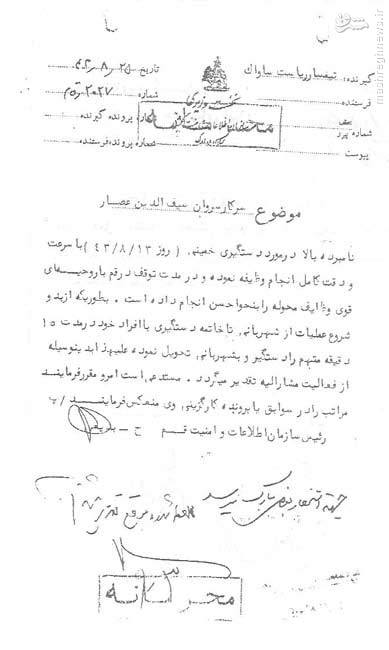 گیرنده: تیمسار ریاست ساواک
تاریخ ۲۵ر۸ر۴۳
فرستنده
شماره ۲۰۲۷ر ق م
نخست وزیری
شماره پرونده گیرنده
شماره پیرو
پیوست
شماره پرونده فرستنده
موضوع سرکار سروان سیف الدین عصار
نامبرده بالا در مورد دستگیری خمینی ( روز ۴۳/۸/۱۳ ) با سرعت
و دقت کامل انجام وظیفه نموده و در مدت توقف در قم با روحیه‌ای
قوی وظایف محوله را بنحو احسن انجام داده است . بطوریکه از بدو
شروع عملیات از شهربانی تا خاتمه دستگیری با افراد خود در مدت ۱۵
دقیقه متهم را دستگیر و بشهربانی تحویل نموده علیهذا بدینوسیله
از فعالیت مشارالیه تقدیر میگردد . مستدعی است امر و مقرر فرمایند
مراتب را در سوابق با پرونده کارگزینی وی منعکس فرمایند / پ
رئیس سازمان اطلاعات و امنیت قم ح - بدیعی
محرمانه
مشرق
mashreghnews.ir